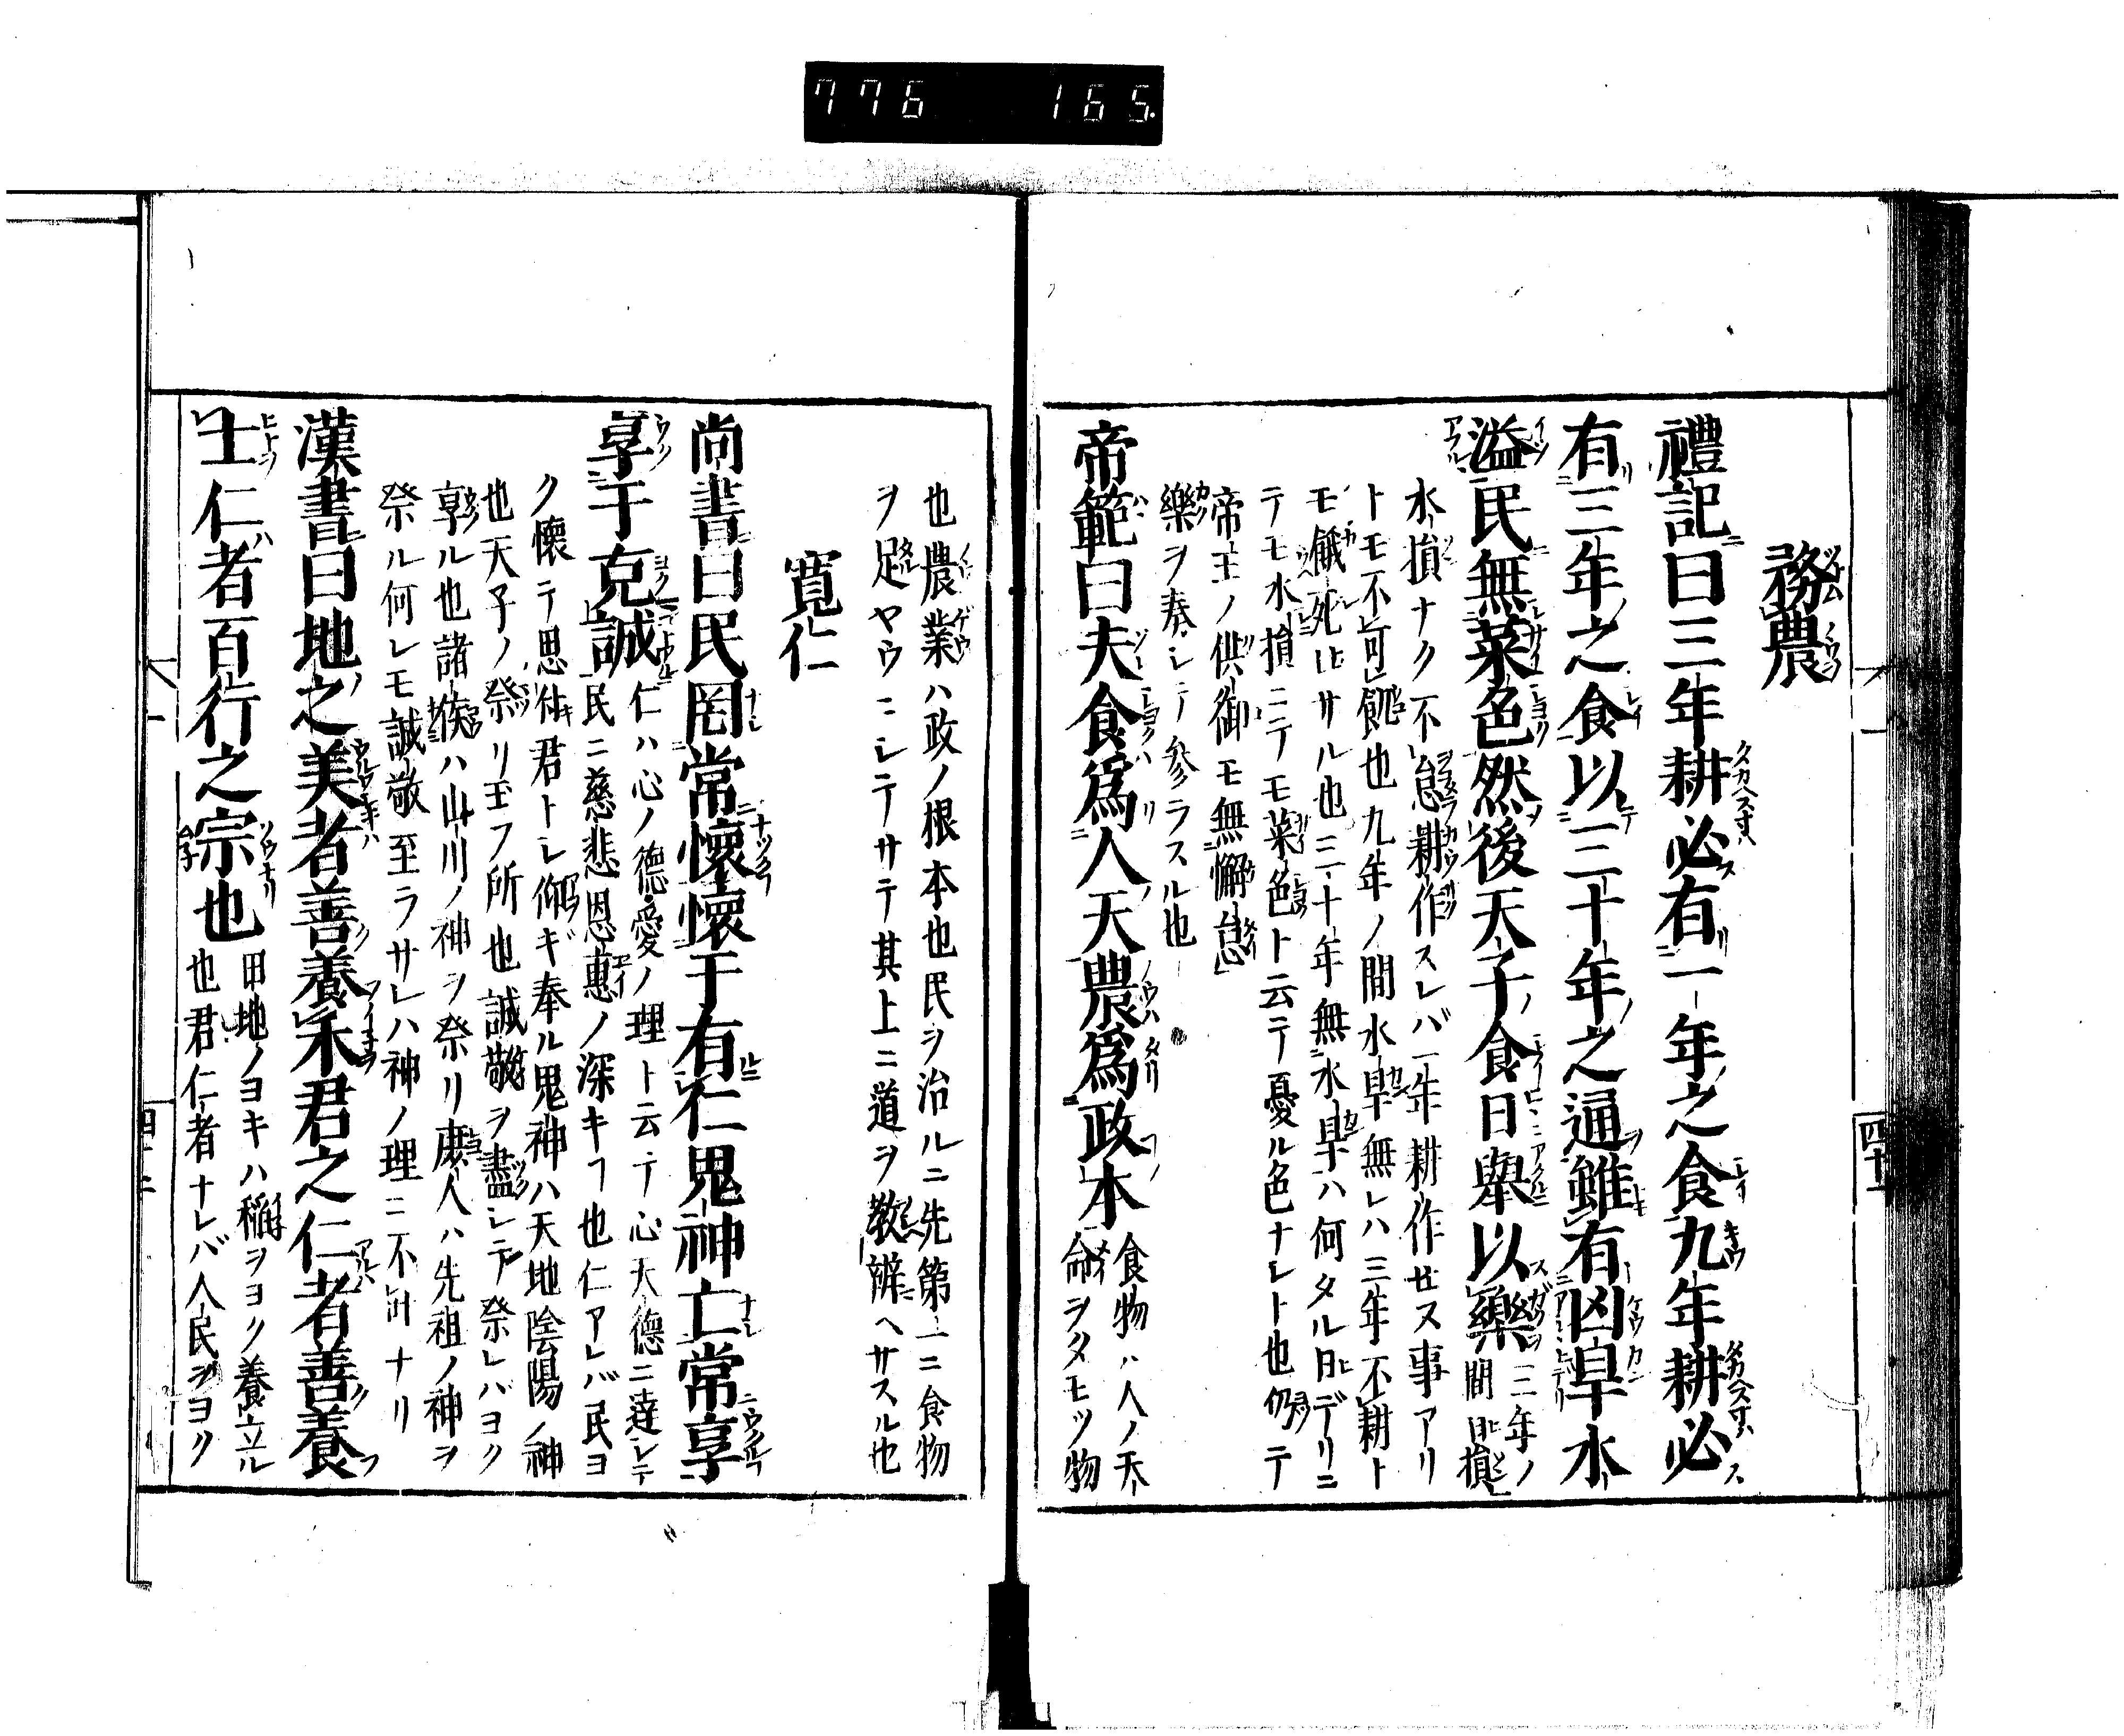 776 165
務農
禮記曰三年耕必有一年之食九年耕必
有三年之食以三十年之通雖有凶旱水
溢民無菜色然後天子食日舉以樂三年ノ間日損
水損ナク不怠耕作スレバ一年耕作セス事アリ
トモ不可飢也九年ノ間水旱無レハ三年不耕ト
モ餓死ハサル也三十年無水旱ハ何タル日デリニ
テモ水損ニテモ菜色ト云テ憂ル色ナレト也仍テ
帝王ノ供御モ無懈怠
樂ヲ奏シテ參ラスル也
帝範曰夫食爲人天農爲政本食物ハ人ノ天命ヲタモツ物
四十二
也農業ハ政ノ根本也民ヲ治ルニ先第一ニ食物
ヲ足ヤウニシテサテ其上ニ道ヲ教辨ヘサスル也
寛仁
尚書曰民罔常懷懷于有仁鬼神亡常享
享于克誠仁ハ心ノ德愛ノ理ト云テ心大德ニ達シテ民ニ慈悲恩惠ノ深キヿ也仁アレバ民ヨ
ク懷テ思付君トシ仰ギ奉ル鬼神ハ天地陰陽ノ神
也天子ノ祭リ玉フ所也誠敬ヲ盡シテ祭レバヨク
享ル也諸侯ハ山川ノ神ヲ祭リ庶人ハ先祖ノ神ヲ
祭ル何レモ誠敬至ラサレハ神ノ理ニ不叶ナリ
漢書曰地之美者善養禾君之仁者善養
士仁者百行之宗也田地ノヨキハ稲ヲヨク養立ル也君仁者ナレバ人民ヲヨク